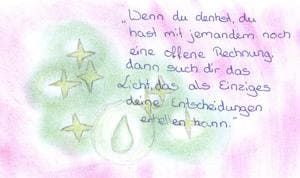 „Wenn du denkst, du
hast mit jemandem noch
eine offene Rechnung,
dann such dir das
Licht, das als Einziges
deine Entscheidungen
erhellen kann.“